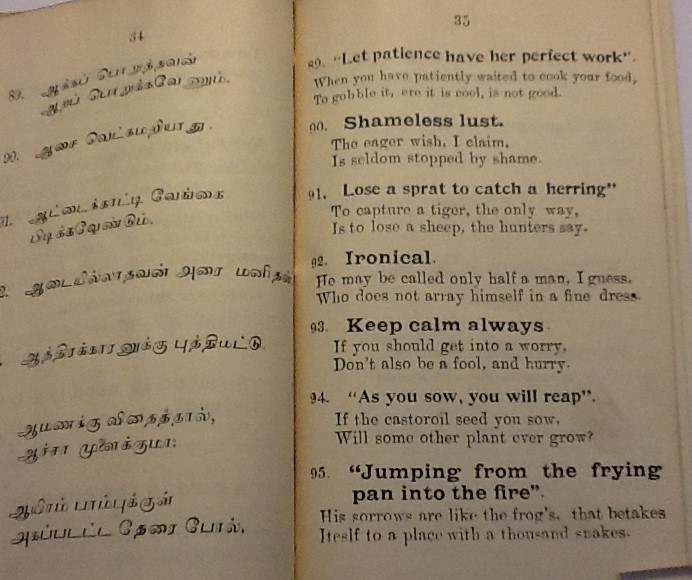 34
89. ஆக்கப் பொறுத்தவன்
ஆறப் பொறுக்கவேணும்.
90. ஆசை வெட்கமறியாது.
91. ஆட்டைக்காட்டி வேங்கை
பிடிக்கவேண்டும்.
2. ஆடையில்லாதவன் அரை மனிதன்
ஆத்திரக்காரனுக்கு புத்திமட்டு.
ஆமணக்கு விதைத்தால்,
ஆச்சா முளைக்குமா?
ஆயிரம் பாம்புக்குள்
அகப்படட்ட தேரை போல்,
35
89. "Let patience have her perfect work".
When you have patiently waited to cook your food,
To gobble it, ere it is cool, is not good.
90. Shameless lust.
The eager wish, I claim,
Is seldom stopped by shame.
91. Lose a sprat to catch a herring"
To capture a tiger, the only way,
Is to lose a sheep, the hunters say.
92. Ironical.
He may be called only half a man, I guess,
Who does not array himself in a fine dress.
93. Keep calm always.
If you should get into a worry,
Don't also be a fool, and hurry.
94. "As you sow, you will reap".
If the castoroil seed you sow,
Will some other plant ever grow?
95. "Jumping from the frying
pan into the fire".
His sorrows are like the frog's, that betakes
Iteslf to a place with a thousand snakes.